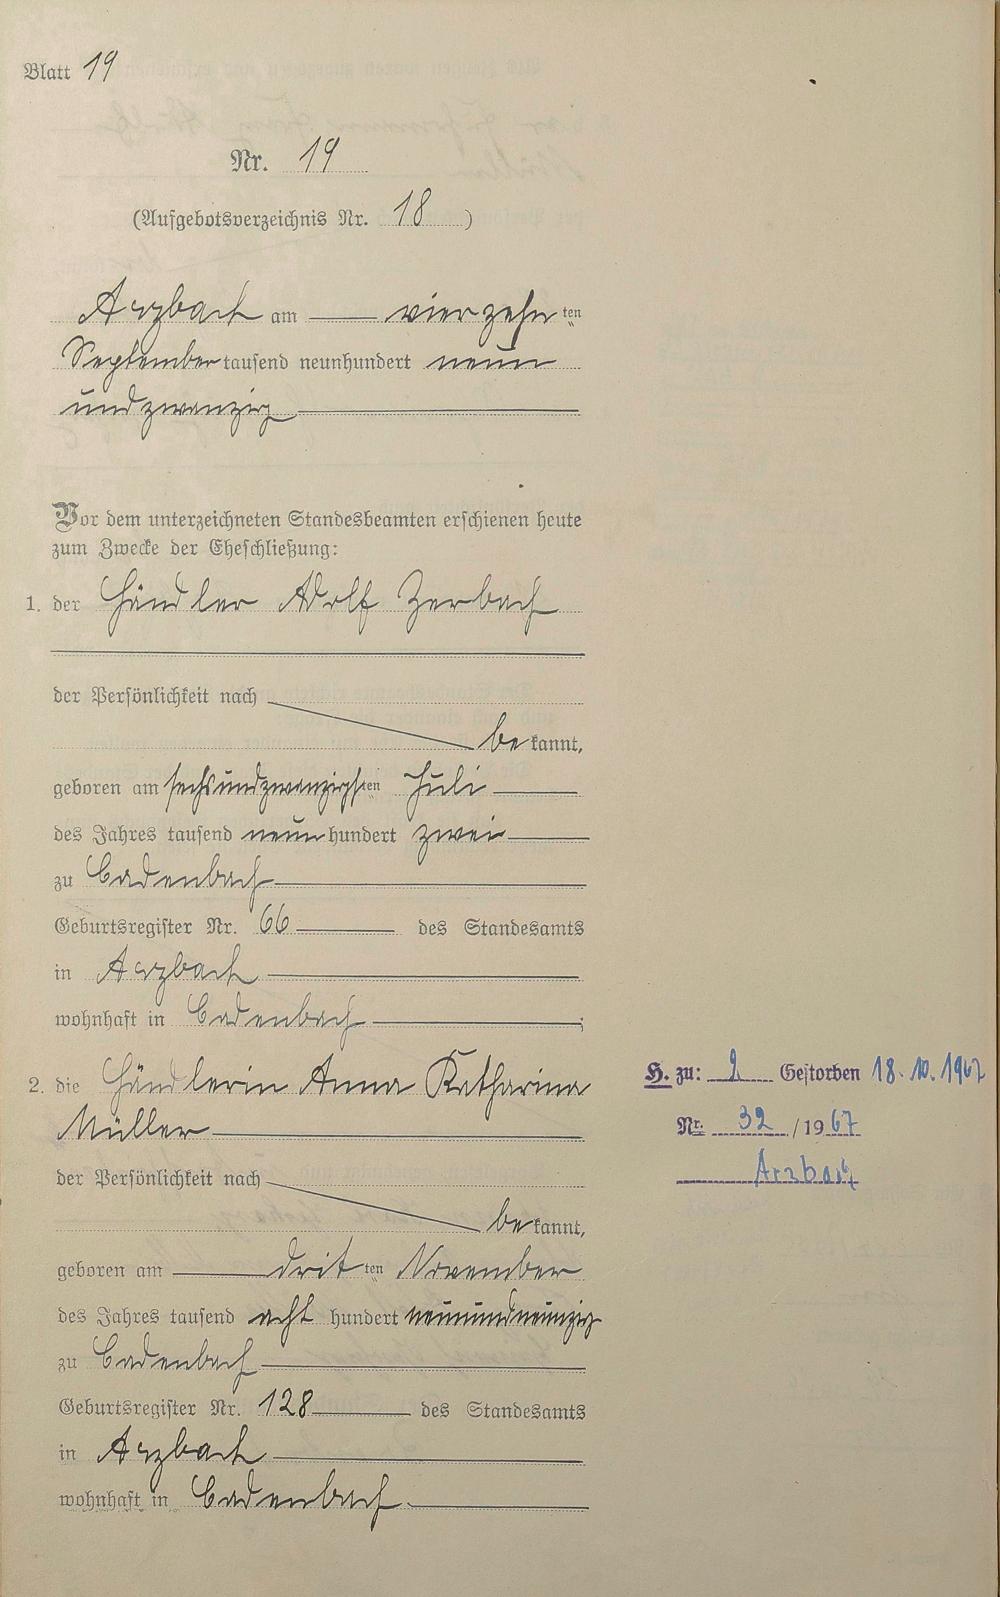 Blatt 19
Nr. 19
(Aufgebotsverzeichnis Nr. 18)
Arzbach am vierzehnten
September tausend neunhundert neun
undzwanzig
Vor dem unterzeichneten Standesbeamten erschienen heute
zum Zwecke der Eheschließung:
1. der Händler Adolf Zerbach
der Persönlichkeit nach
bekannt,
geboren am sechsundzwanzigsten Juli
des Jahres tausend neunhundert zwei
zu Cadenbach
Geburtsregister Nr. 66 des Standesamts
in Arzbach
wohnhaft in Cadenbach;
2. die Händlerin Anna Katharina
Müller
der Persönlichkeit nach
bekannt,
geboren am dritten November
des Jahres tausend acht hundert neunundneunzig
zu Cadenbach
Geburtsregister Nr. 128 des Standesamts
in Arzbach
wohnhaft in Cadenbach.
H. zu: 2 Gestorben 18.10.1967
Nr. 32/1967
Arzbach